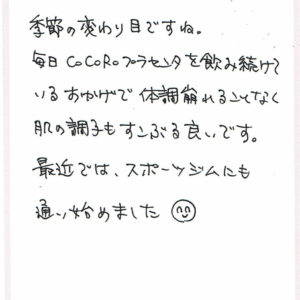 季節の変わり目ですね。
毎日CoCoRoプラセンタを飲み続けて
いるおかげで体調崩れることなく
肌の調子もすこぶる良いです。
最近では、スポーツジムにも
通い始めました